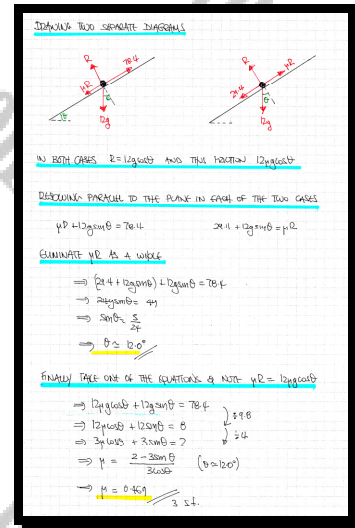 DRAWING TWO SEPARATE DIAGRAMS
R
78.4
μR
θ
12g
θ
R
μR
29.4
θ
12g
IN BOTH CASES R=12gcosθ AND THUS FRICTION 12μgcosθ
RESOLVING PARALLEL TO THE PLANE IN EACH OF THE TWO CASES
μR + 12gsinθ = 78.4
29.4 + 12gsinθ = μR
ELIMINATE μR AS A WHOLE
⇒ (29.4 + 12gsinθ) + 12gsinθ = 78.4
⇒ 24gsinθ = 49
⇒ sinθ = 5/24
⇒ θ ≃ 12.0°
FINALLY TAKE ONE OF THE EQUATIONS & NOTE μR = 12μgcosθ
⇒ 12μgcosθ + 12gsinθ = 78.4
÷9.8
⇒ 12μcosθ + 12sinθ = 8
÷4
⇒ 3μcosθ + 3sinθ = 2
⇒ μ = (2 - 3sinθ)/(3cosθ) (θ≃12.0°)
⇒ μ = 0.469
3 s.f.